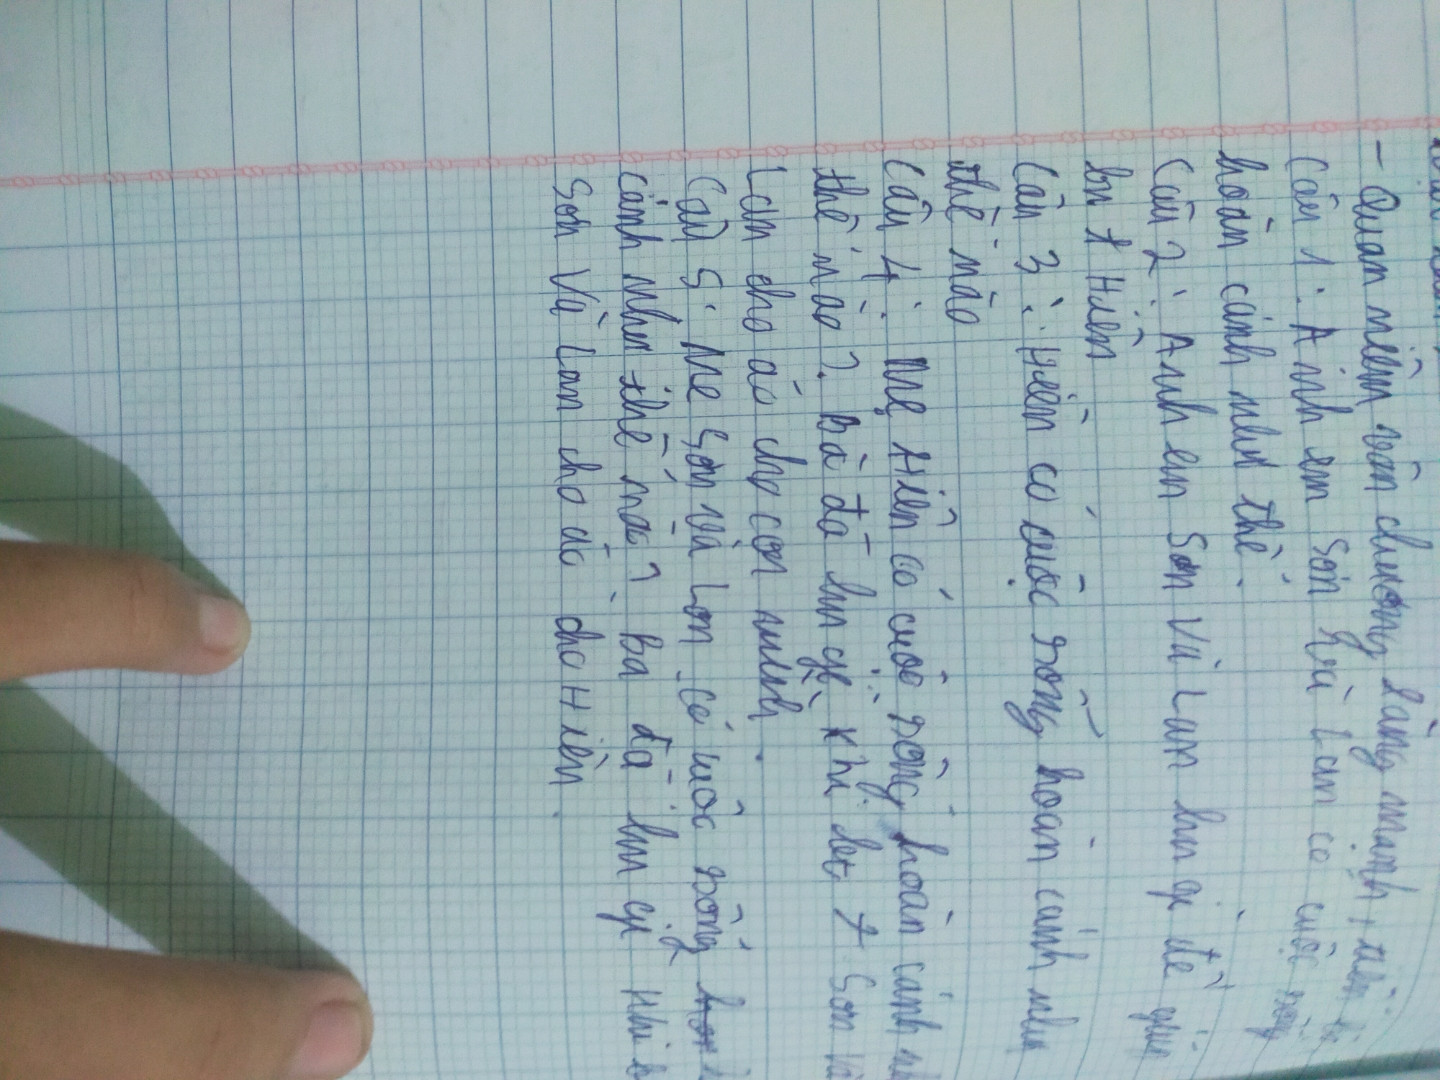 - Quan niệm văn chương lãng mạnh,
Câu 1: Anh em Sơn và Lan có cuộc sống
hoàn cảnh như thế.
Câu 2: Anh em Sơn Và Lan làm gì để giúp
bn t Hiên
Câu 3: Hiên có cuộc sống hoàn cảnh như
thế nào
Câu 4: Mẹ Hiên có cuôc sống hoàn cảnh
thế nào? Bà đã làm gì khi bt Sơn và
Lan cho áo cho con mình.
Câu 5: Mẹ Sơn và Lan có cuôc sống
cảnh như thế nào? Bà đã làm gì khi
Sơn Và Lan cho áo cho Hiên.